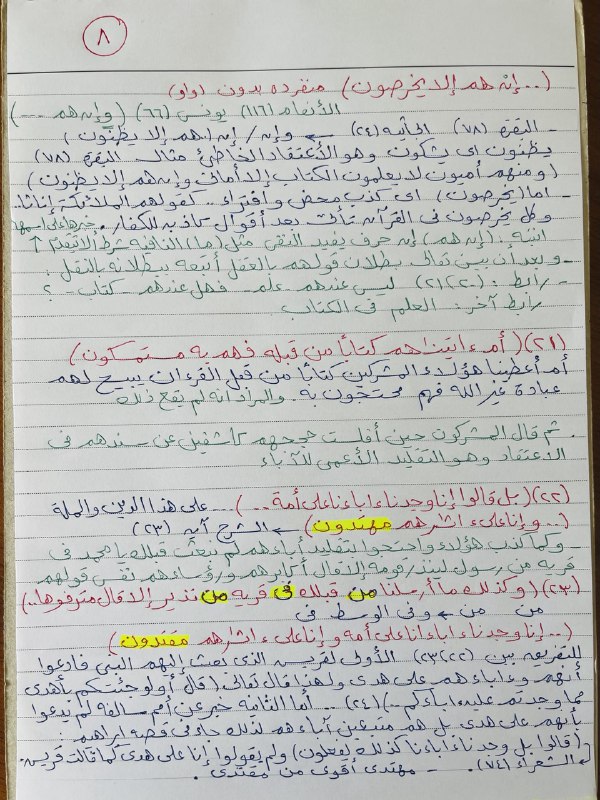 ٨
(.. إن هم إلا يخرصون) منفرده بدون (واو)
الأنعام (١١٦) يونس (٦٦) (وإن هم ...)
- البقرة (٧٨) الجاثية (٢٤) ← وإن / إن (هم إلا يظنون)
يظنون أى يشكون وهو الأعتقاد الخاطئ مثال البقرة (٧٨)
(ومنهم أميون لا يعلمون الكتاب إلا أمانى وإن هم إلا يظنون)
- اما (يخرصون) اى كذب محض وافتراء .. لقولهم الملائكة إناثا.
وكل يخرصون فى القرآن تأتى بعد أقوال كاذبه للكفار.
انتبه: (إن هم) إن حرف يفيد النفى مثل (ما) النافية شرط ألا يتقدم خبرها على اسمها
- وبعد أن بين تعالى بطلان قولهم بالعقل أتبعه ببطلانه بالنقل:
- رابط: (٢٠-٢١) ليس عندهم علم فهل عندهم كتاب ؟
رابط آخر: العلم فى الكتاب
(٢١) (أم ءاتيناهم كتابا من قبله فهم به مستمسكون)
أم أعطينا هؤلاء المشركين كتابا من قبل القرءان يبيح لهم
عبادة غير الله فهم محتجون به. والمراد انه لم يقع ذلك
. ثم قال المشركون حين أفلست حججهم كاشفين عن سندهم فى
الاعتقاد وهو التقليد الأعمى للآباء
(٢٢) (بل قالوا إنا وجدنا ءاباءنا على أمة ..) .. على هذا الدين والملة
(.. وإنا على ءاثارهم مهتدون) ← الشرح آيه (٢٣)
- وكما كذب هؤلاء واحتجوا بتقليد أباءهم لم نبعث قبلك يا محمد فى
قريه من رسول لينذر قومه الا قال أكابرهم ورؤساءهم نفس قولهم
(٢٣) (وكذلك ما أرسلنا من قبلك فى قرية من نذير إلا قال مترفوها ..)
من من ← وفى الوسط فى
(.. إنا وجدنا ءاباءنا على أمه وإنا على ءاثارهم مقتدون)
للتفريعه بين (٢٢، ٢٣) الأولى لقريش الذى بعث إليهم النبى فادعوا
أنهم وءاباءهم على هدى ولهذا قال تعالى (قال أولو جئتكم بأهدى
مما وجدتم عليه ءاباءكم ..) (٢٤) .. أما الثانيه خبر عن أمم سالفه لم يدعوا
بأنهم على هدى بل هم متبعين آباءهم لذلك جاء فى قصه ابراهيم
(قالوا بل وجدنا ءاباءنا كذلك يفعلون) ولم يقولوا إنا على هدى كما قالت قريش.
الشعراء (٧٤). - مهتدى أقوى من مقتدى.